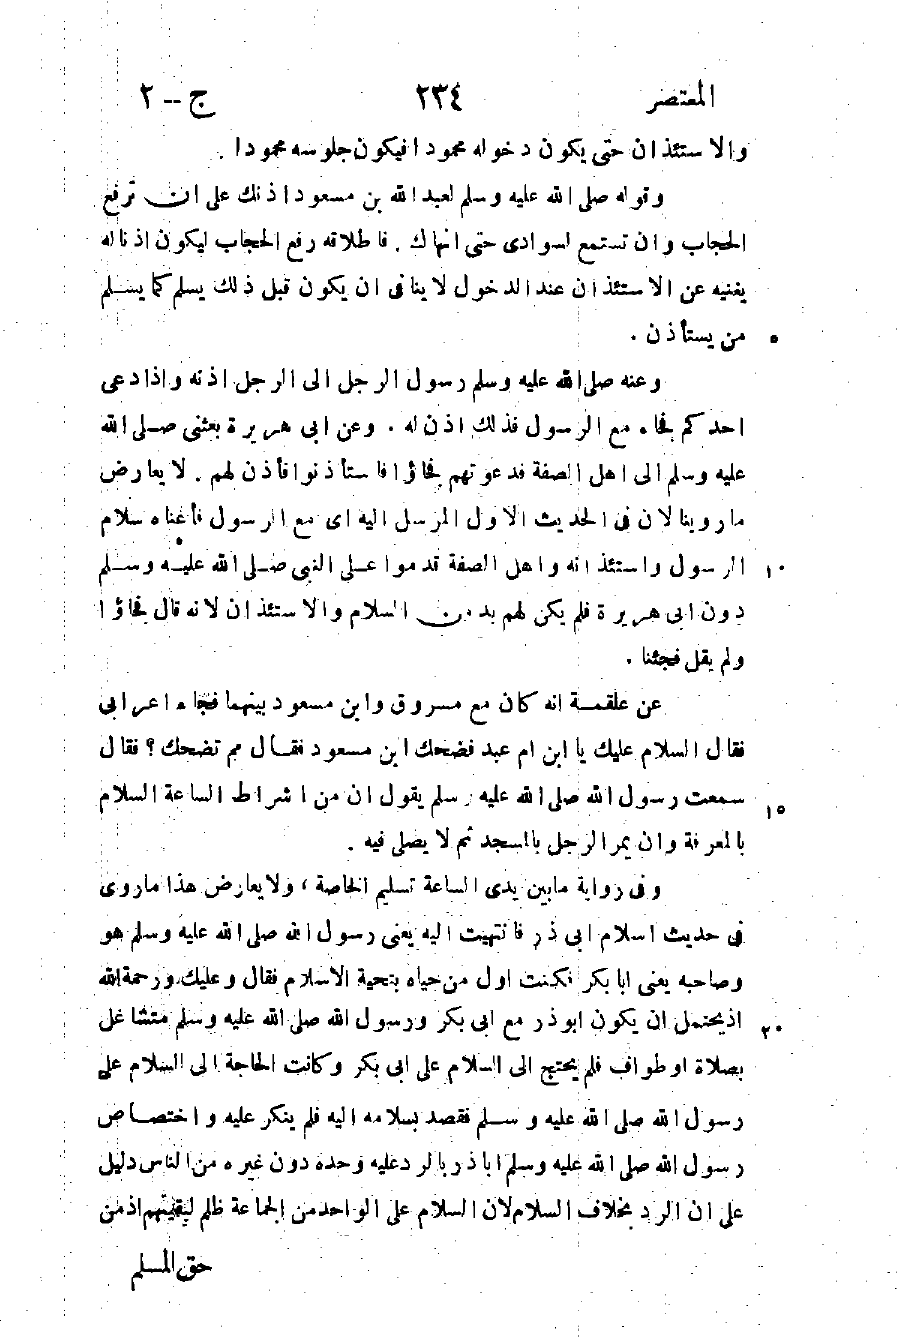 المعتصر ٢٣٤ ج -- ٢
والاستئذان حتى يكون دخوله محمودا فيكون جلوسه محمودا .
وقوله صلى الله عليه وسلم لعبد الله بن مسعود اذنك على ان ترفع
الحجاب وان تستمع لسوادى حتى انهاك . فاطلاقه رفع الحجاب ليكون اذنا له
يغنيه عن الاستئذان عند الدخول لا ينافى ان يكون قبل ذلك يسلم كما يسلم
من يستأذن . ٥
وعنه صلى الله عليه وسلم رسول الرجل الى الرجل اذنه واذا دعى
احدكم فجاء مع الرسول فذلك اذن له . وعن ابى هريرة بعثنى صلى الله
عليه وسلم الى اهل الصفة فدعوتهم فجاؤا فاستأذنوا فأذن لهم . لا يعارض
ما روينا لان فى الحديث الاول المرسل اليه اى مع الرسول فأغناه سلام
الرسول واستئذانه واهل الصفة قدموا على النبى صلى الله عليه وسلم ١٠
دون ابى هريرة فلم يكن لهم بد من السلام والاستئذان لانه قال فجاؤا
ولم يقل فجئنا .
عن علقمة انه كان مع مسروق وابن مسعود بينهما فجاء اعرابى
فقال السلام عليك يا ابن ام عبد فضحك ابن مسعود فقال مم تضحك ؟ فقال
سمعت رسول الله صلى الله عليه وسلم يقول ان من اشراط الساعة السلام ١٥
بالمعرفة وان يمر الرجل بالمسجد ثم لا يصلى فيه .
وفى رواية ما بين يدى الساعة تسليم الخاصة ، ولا يعارض هذا ما روى
فى حديث اسلام ابى ذر فانتهيت اليه يعنى رسول الله صلى الله عليه وسلم هو
وصاحبه يعنى ابا بكر فكنت اول من حياه بتحية الاسلام فقال وعليك ورحمة الله
اذ يحتمل ان يكون ابوذر مع ابى بكر ورسول الله صلى الله عليه وسلم متشاغل ٢٠
بصلاة او طواف فلم يحتج الى السلام على ابى بكر وكانت الحاجة الى السلام على
رسول الله صلى الله عليه وسلم فقصد بسلامه اليه فلم ينكر عليه واختصاص
رسول الله صلى الله عليه وسلم اباذر بالرد عليه وحده دون غيره من الناس دليل
على ان الرد بخلاف السلام لان السلام على الواحد من الجماعة ظلم لبقيتهم اذ من
حق المسلم